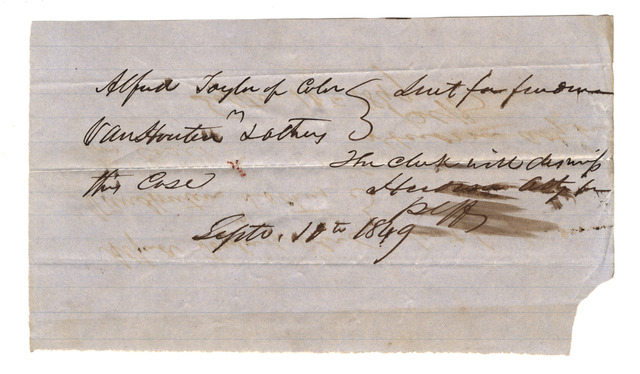 Alfred Taylor of Color } Suit for freedom
Van Houten & others
The clerk will dismiss
this Case
Atty for
Plff
Septr. 11th 1849